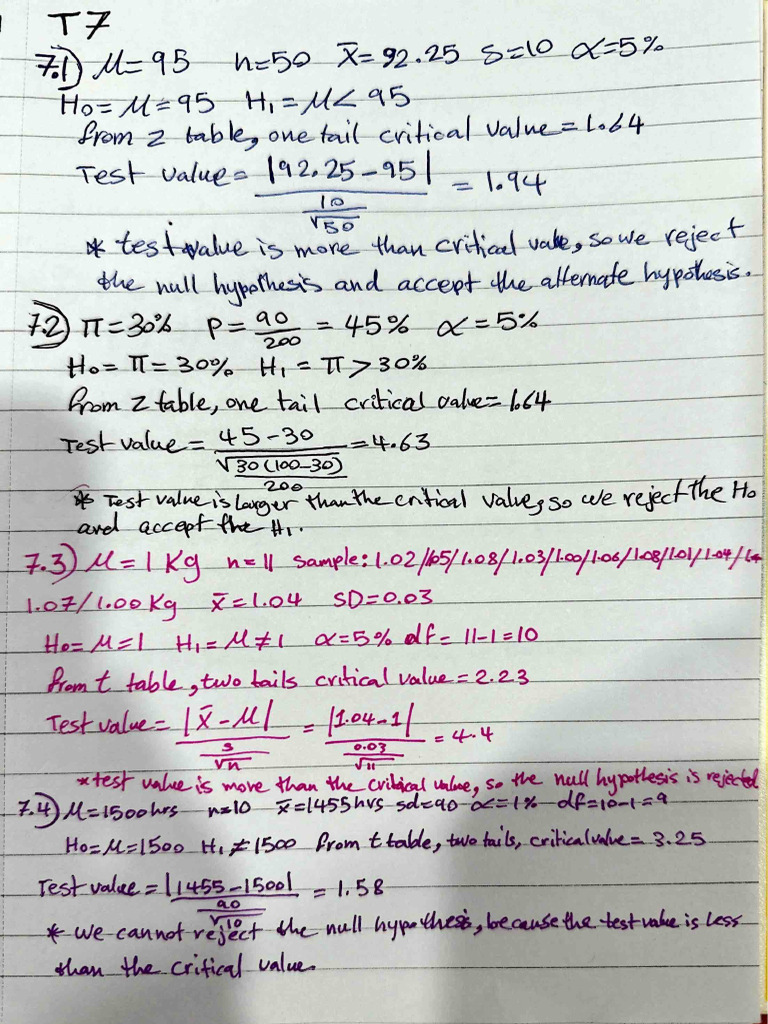 T7
7.1) μ=95 n=50 x̄=92.25 s=10 α=5%
H₀=μ=95 H₁=μ<95
from z table, one tail critical value=1.64
Test value= |92.25-95| / (10/√50) = 1.94
* test value is more than critical value, so we reject
the null hypothesis and accept the alternate hypothesis.
7.2) π=30% P=90/200=45% α=5%
H₀=π=30% H₁=π>30%
from z table, one tail critical value=1.64
Test value = 45-30 / √30(100-30)/200 = 4.63
* Test value is larger than the critical value, so we reject the H₀
and accept the H₁.
7.3) μ=1Kg n=11 sample: 1.02/1.05/1.08/1.03/1.00/1.06/1.08/1.01/1.04/
1.07/1.00Kg x̄=1.04 SD=0.03
H₀=μ=1 H₁=μ≠1 α=5% df=11-1=10
from t table, two tails critical value=2.23
Test value= |x̄-μ| / (s/√n) = |1.04-1| / (0.03/√11) = 4.4
* test value is more than the critical value, so the null hypothesis is rejected
7.4) μ=1500hrs n=10 x̄=1455hrs sd=90 α=1% df=10-1=9
H₀=μ=1500 H₁≠1500 from t table, two tails, critical value=3.25
Test value=|1455-1500| / (90/√10) = 1.58
* we cannot reject the null hypothesis, because the test value is less
than the critical value.